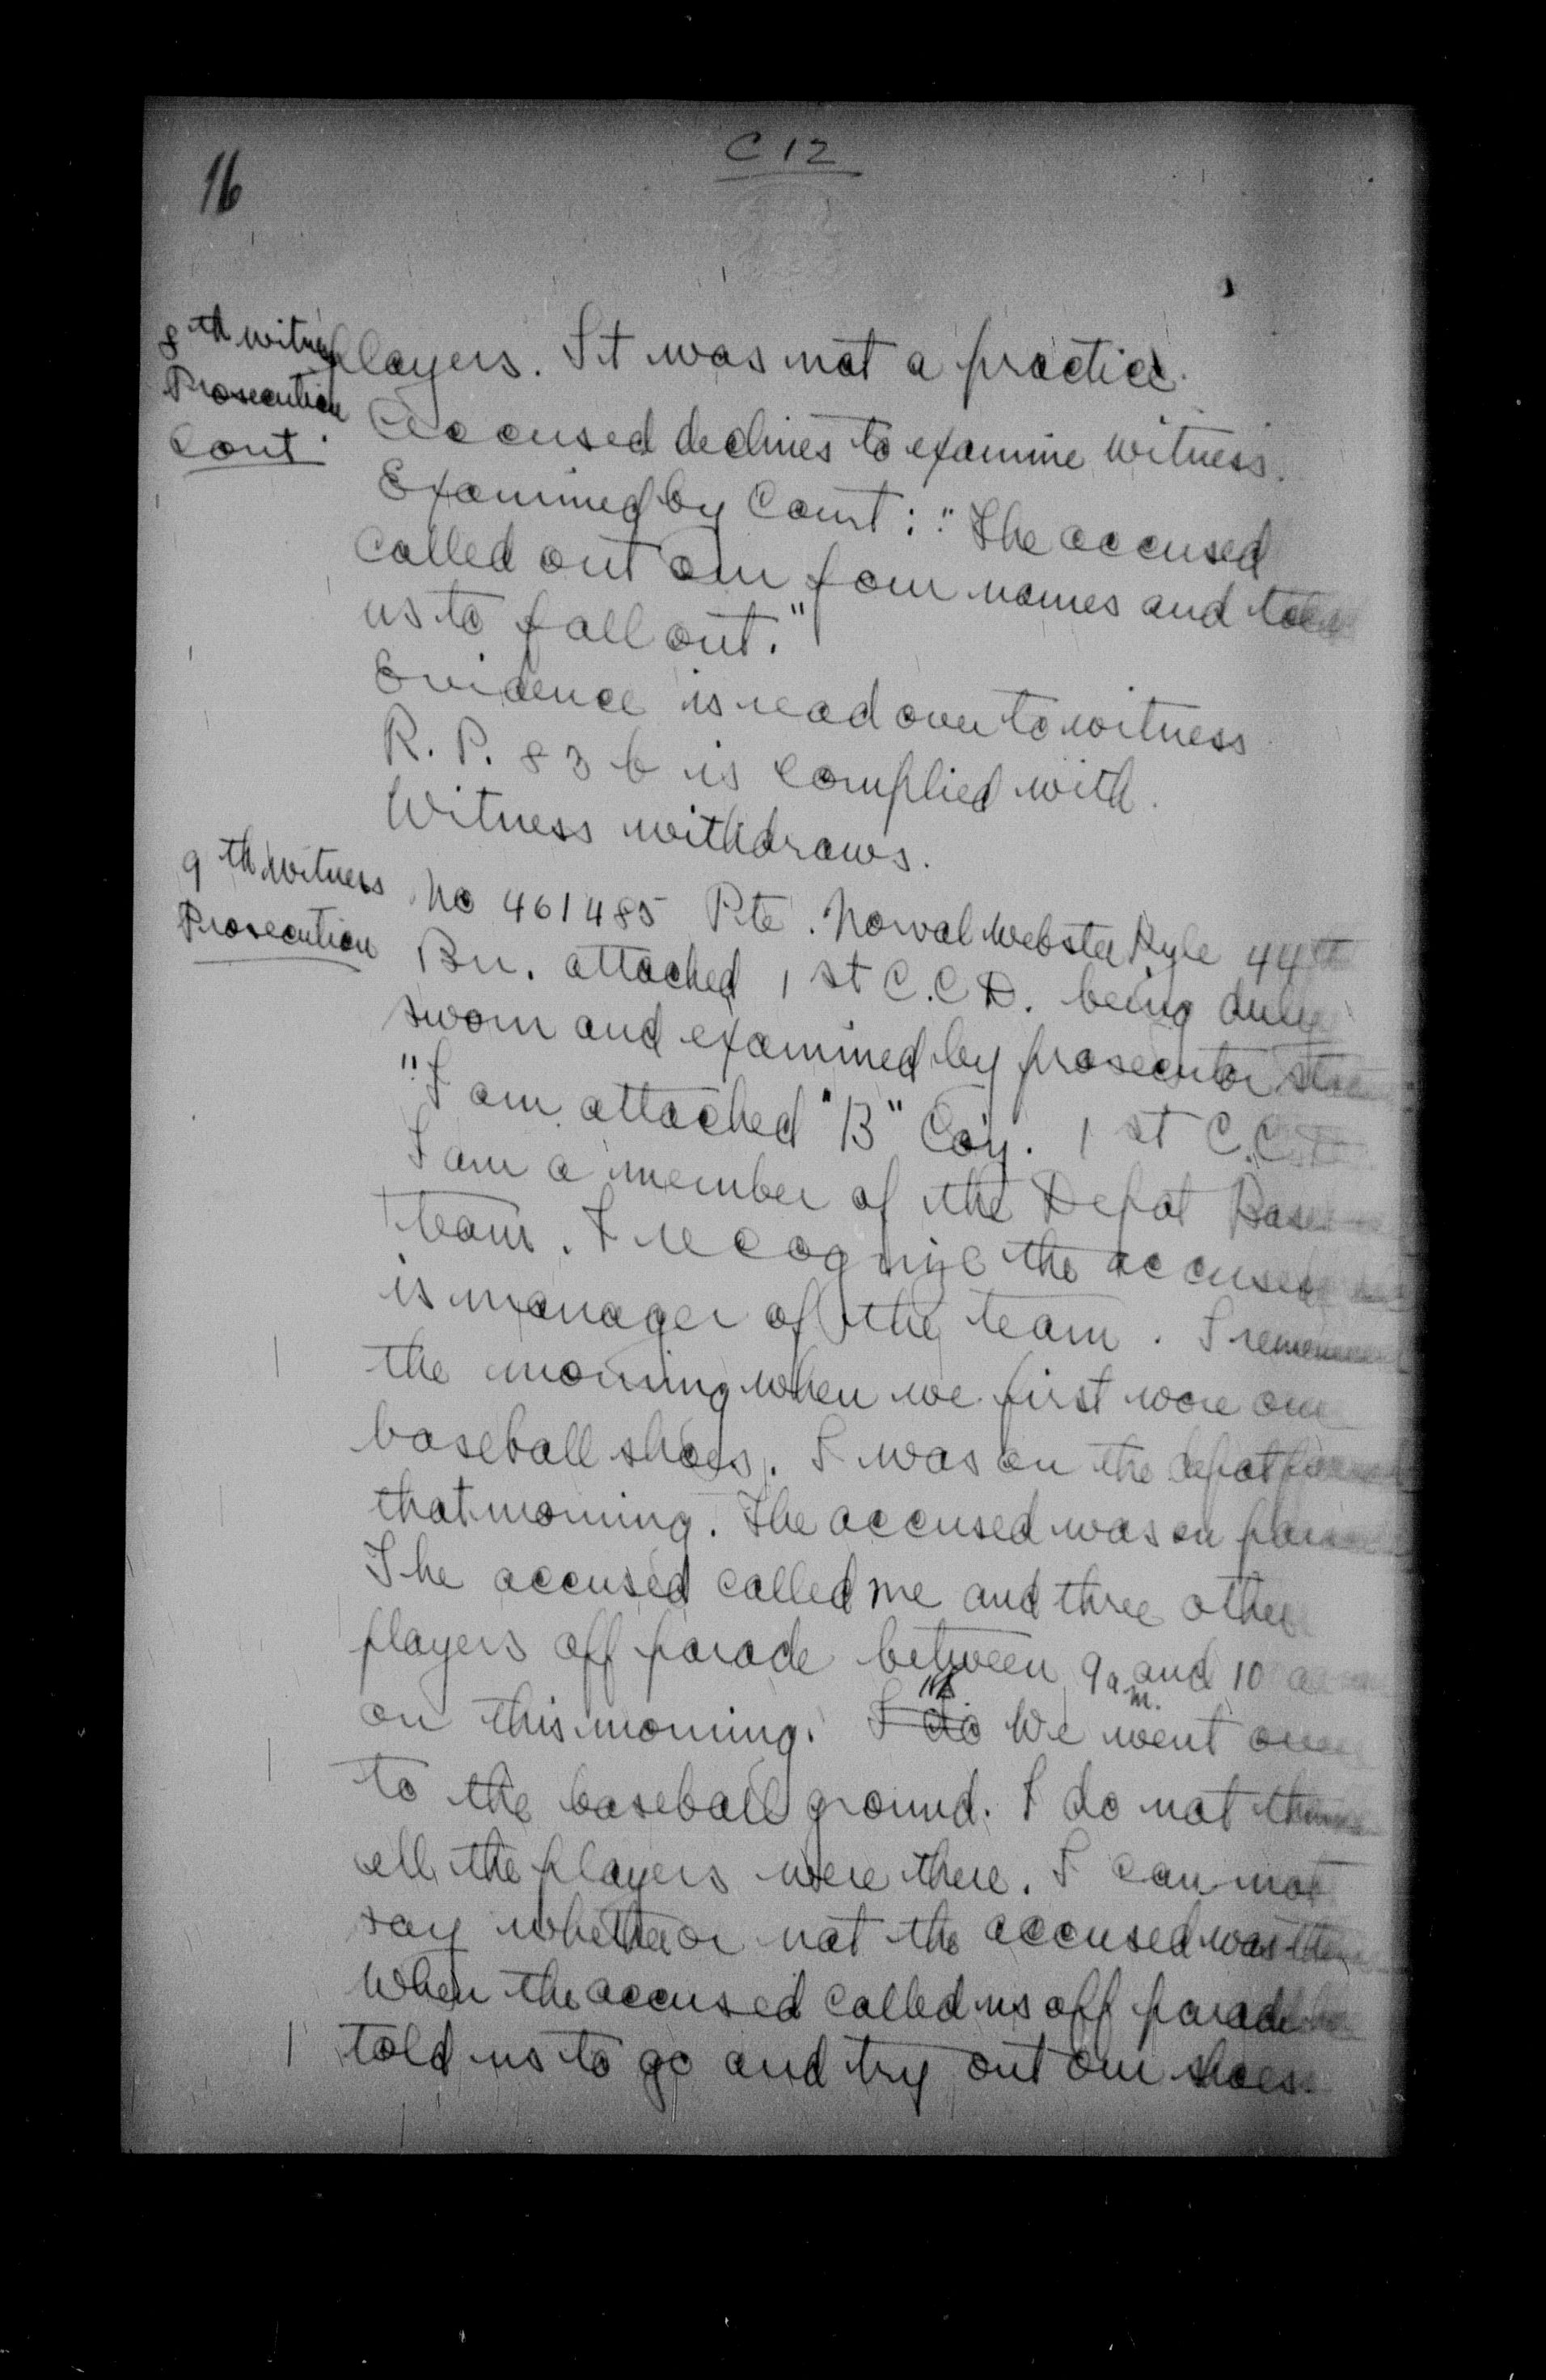 C 12
16
8th witness
Prosecution
Cont.
players. It was not a practice.
Accused declines to examine witness.
Examined by Court: "The accused
called out our four names and told
us to fall out."
Evidence is read over to witness
R. P. 83 b is complied with.
Witness withdraws.
9th witness
Prosecution
No 461485 Pte. Norval Webster Kyle 44th
Bn. attached 1st C.C.D. being duly
sworn and examined by prosecutor states
"I am attached "B" Coy. 1st C.C.D.
I am a member of the Depot Baseball
team. I recognize the accused
is manager of the team. I remember
the morning when we first wore our
baseball shoes. I was on the depot parade
that morning. The accused was on parade
The accused called me and three other
players off parade between 9 a.m. and 10 a.m.
on this morning. I do We went over
to the baseball ground. I do not think
all the players were there. I can not
say whether or not the accused was there
When the accused called us off parade he
told us to go and try out our shoes.